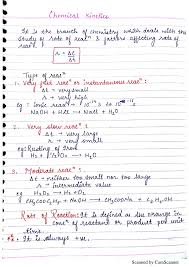 Chemical Kinetics
It is the branch of chemistry which deals with the
study of rate of reacn & factors affecting rate of
reacn.
r = Δc/Δt
Type of reacn
1. Very fast reacn or instantaneous reacn :
Δt = very small
r = very high
eg: Ionic reacn → 10-14 to 10-16 s
H+ + OH- → H2O
2. Very slow reacn :
Δt → very large
r → very small
eg: Rusting of iron
H2 + O2 → H2O
3. Moderate reacn :
Δt = neither too small nor too large
r = intermediate value
eg:
CH3COOC2H5 + NaOH → CH3COONa + C2H5OH
Rate of Reaction: It is defined as the change in
concn of reactant or product per unit
time.
It is always +ve.
Scanned by CamScanner